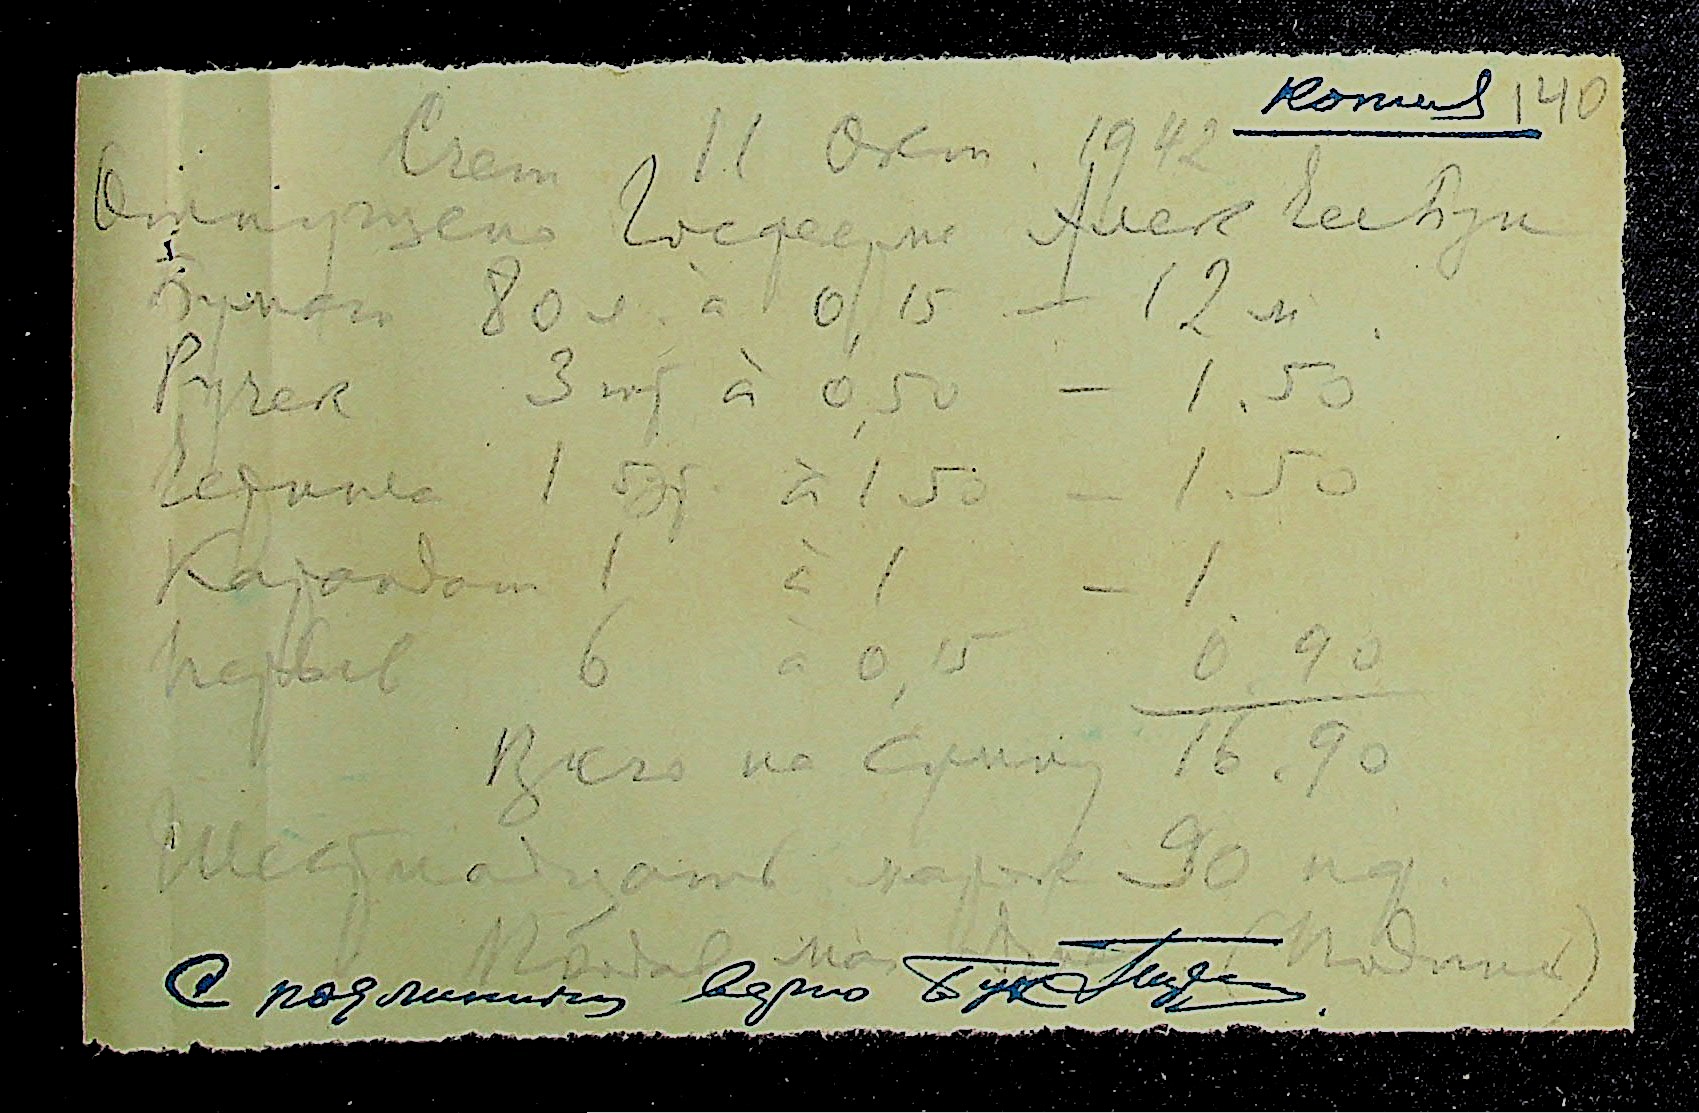 Копия 140
Счет 11 Окт. 1942
Отпущено Госферме Алек
Бумаги 80 л. à 0,15 — 12 м.
Ручек 3 шт à 0,50 — 1.50
Чернила 1 à 1 50 — 1.50
Карандаш 1 à 1 — 1
Перьев 6 à 0,15 0.90
Всего на сумму 16.90
Шестнадцать марок 90 пф.
(Подпись)
С подлинным верно Бух